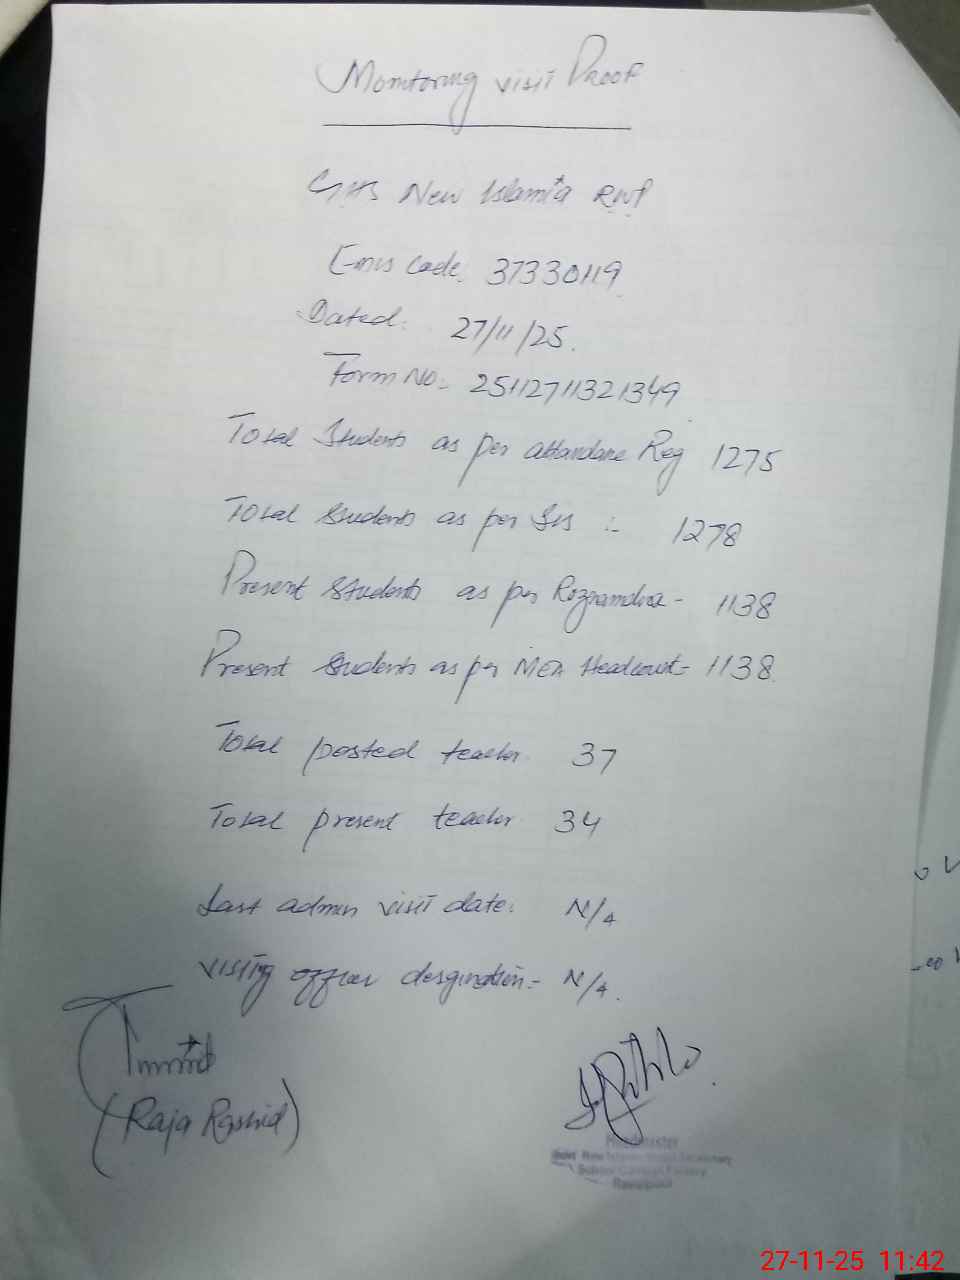 Monitoring visit Proof
GHS New Islamia RWP
Emis Code. 37330119
Dated: 27/11/25.
Form No- 25112711321349
Total Students as per attandane Reg 1275
Total Students as per SIS :- 1278
Present Students as per Roznamcha - 1138
Present Students as per MEA Headcount- 1138
Total posted teacher. 37
Total present teacher. 34
Last admin visit date: N/A
Visiting officer desgination:- N/A.
(Raja Rashid)
Headmaster
Govt New Islamia
School
Rawalpindi
27-11-25 11:42